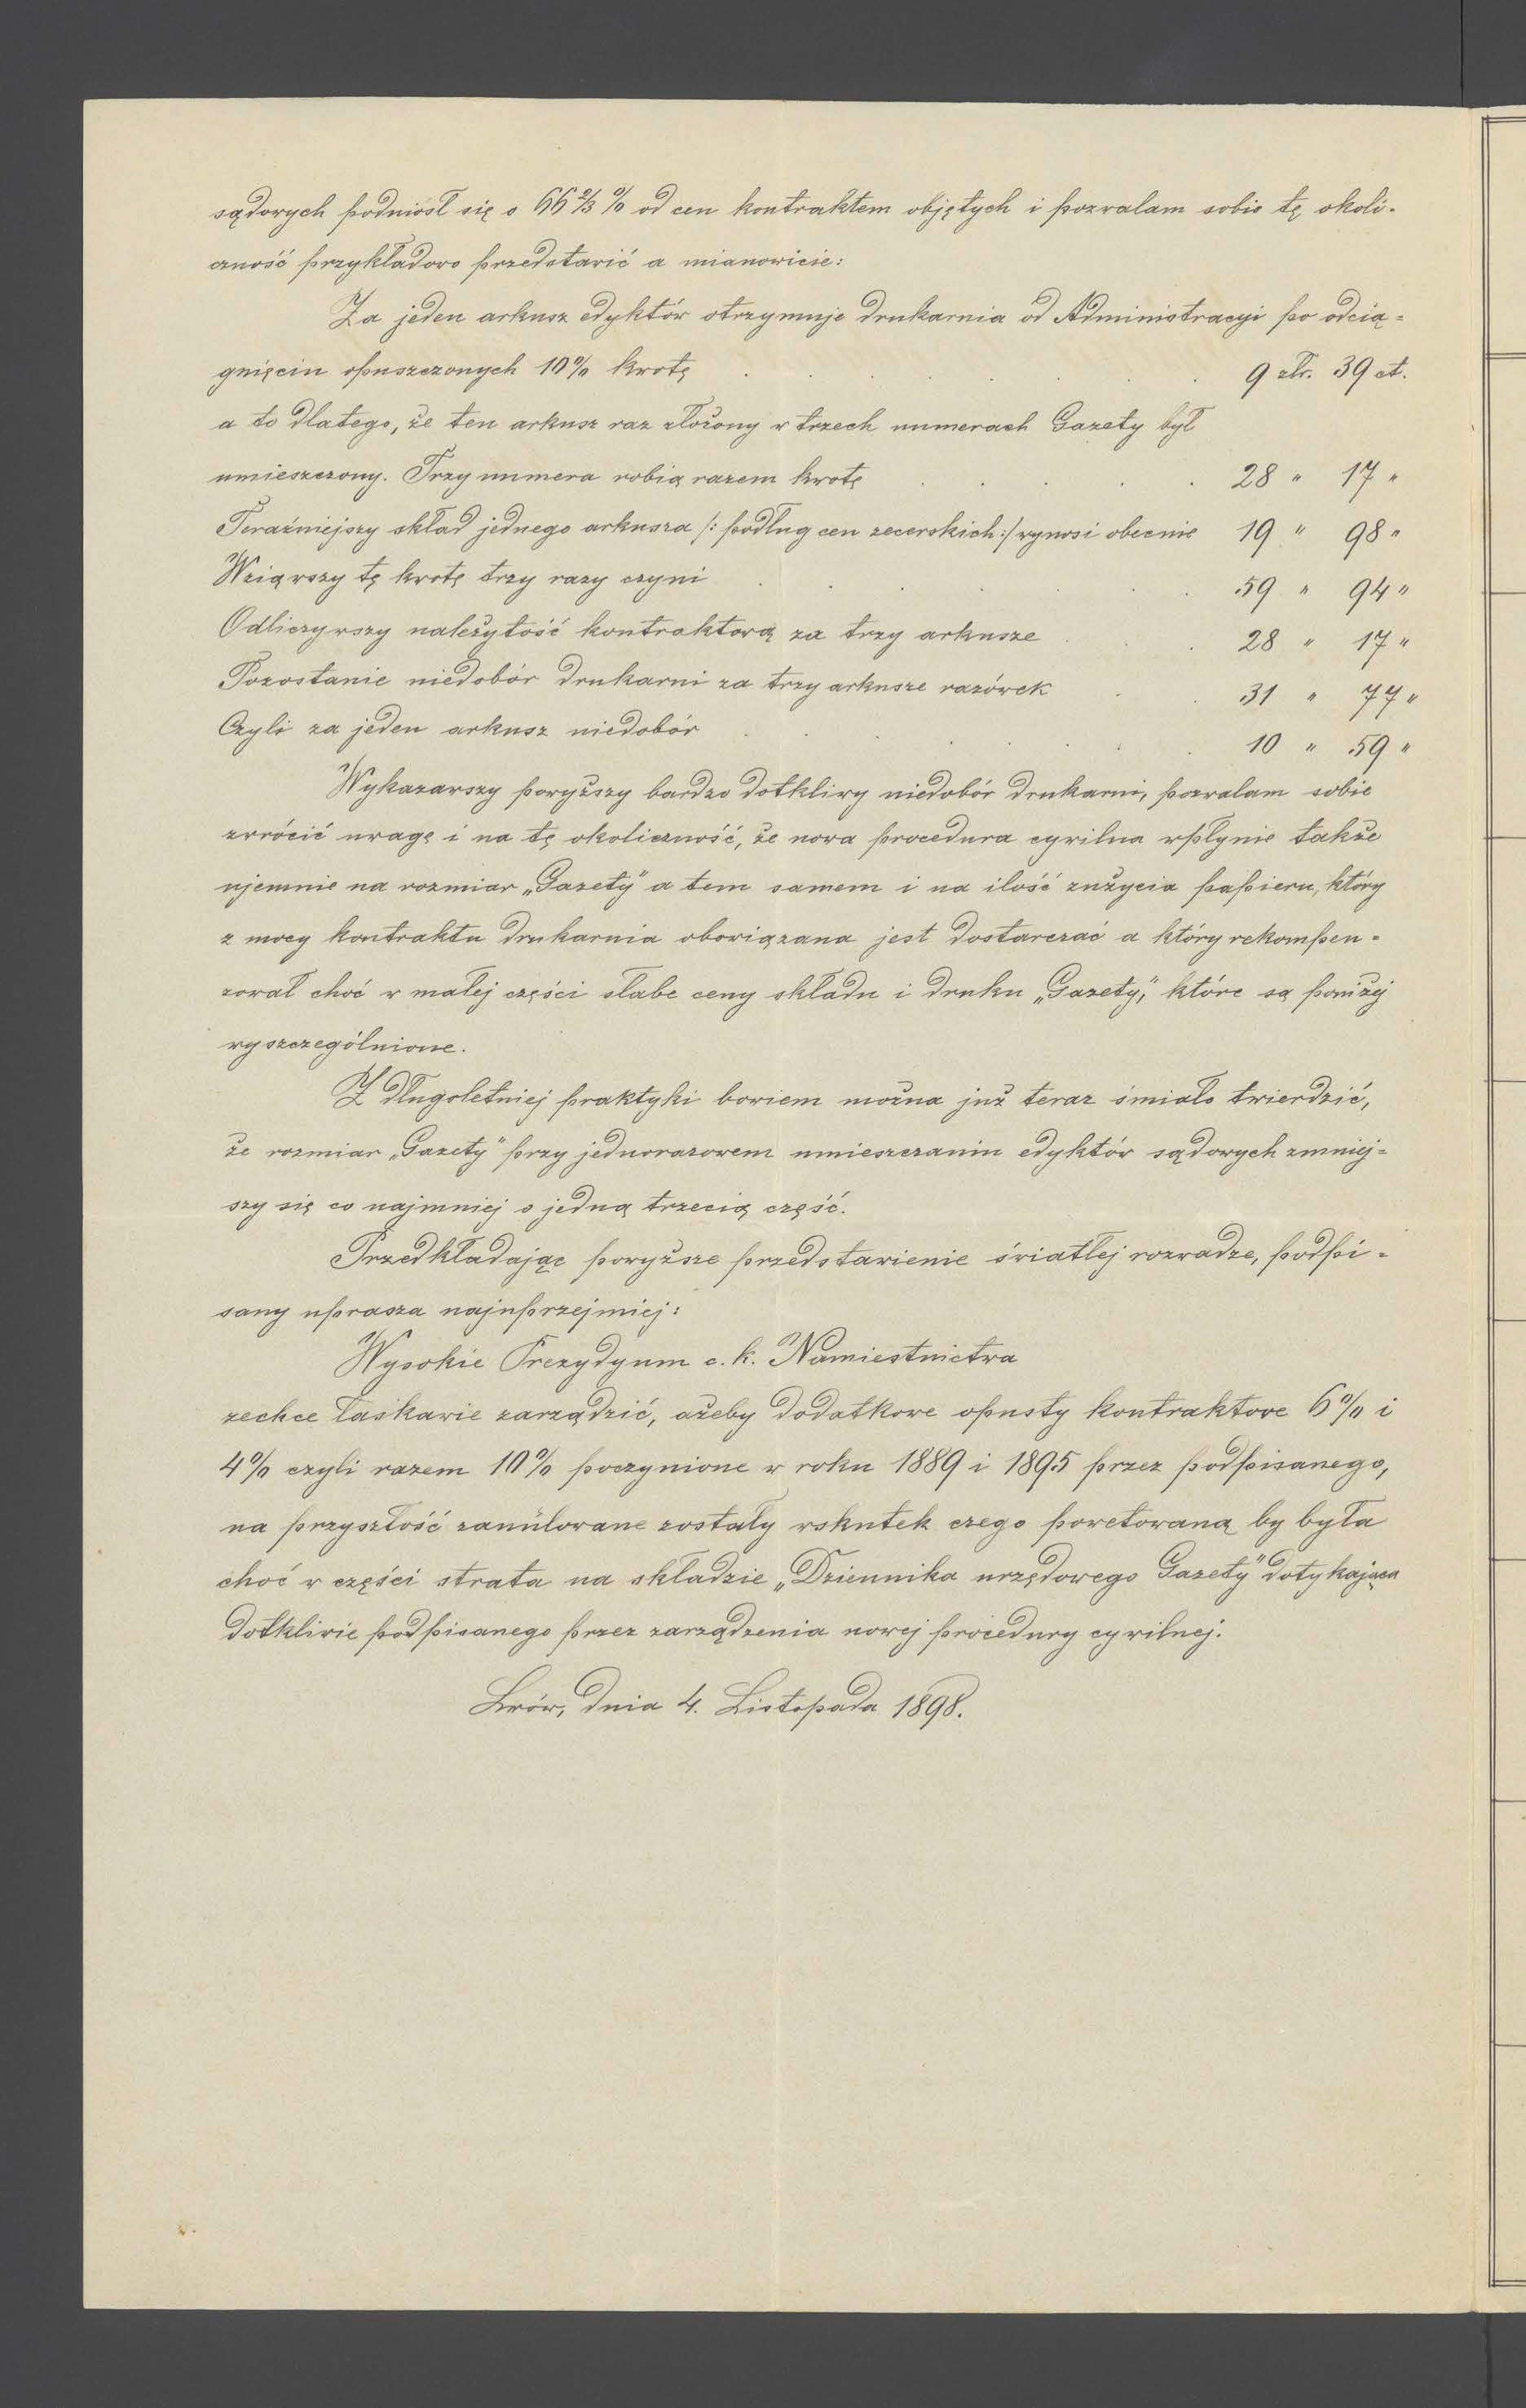 sądowych podniósł się o 66⅔% od cen kontraktem objętych i pozwalam sobie tę okoli-
czność przykładowo przedstawić a mianowicie:
Za jeden arkusz edyktów otrzymuje drukarnia od Administracyi po odcią-
gnięciu opuszczonych 10% kwotę . . . . . . 9 złr. 39 ct.
a to dlatego, że ten arkusz raz złożony w trzech numerach Gazety był
umieszczony. Trzy numera robią razem kwotę . . . . . 28 " 17 "
Teraźniejszy skład jednego arkusza /: podług cen zecerskich :/ wynosi obecnie 19 " 98 "
Wziąwszy tę kwotę trzy razy czyni . . . . . . 59 " 94 "
Odliczywszy należytość kontraktową za trzy arkusze . . . 28 " 17 "
Pozostanie niedobór drukarni za trzy arkusze razówek . . 31 " 77 "
Czyli za jeden arkusz niedobór . . . . . . 10 " 59 "
Wykazawszy powyższy bardzo dotkliwy niedobór drukarni, pozwalam sobie
zwrócić uwagę i na tę okoliczność, że nowa procedura cywilna wpłynie także
ujemnie na rozmiar „Gazety" a tem samem i na ilość zużycia papieru, który
z mocy kontraktu drukarnia obowiązana jest dostarczać a który rekompen-
zował choć w małej części słabe ceny składu i druku „Gazety", które są poniżej
wyszczególnione.
Z długoletniej praktyki bowiem można już teraz śmiało twierdzić,
że rozmiar „Gazety" przy jednorazowem umieszczaniu edyktów sądowych zmniej-
szy się co najmniej o jedną trzecią część.
Przedkładając powyższe przedstawienie światłej rozwadze, podpi-
sany uprasza najuprzejmiej:
Wysokie Prezydyum c. k. Namiestnictwa
zechce łaskawie zarządzić, ażeby dodatkowe opusty kontraktowe 6% i
4% czyli razem 10% poczynione w roku 1889 i 1895 przez podpisanego,
na przyszłość zanulowane zostały wskutek czego powetowaną by była
choć w części strata na składzie „Dziennika urzędowego Gazety" dotykająca
dotkliwie podpisanego przez zarządzenia nowej procedury cywilnej.
Lwów, dnia 4. Listopada 1898.